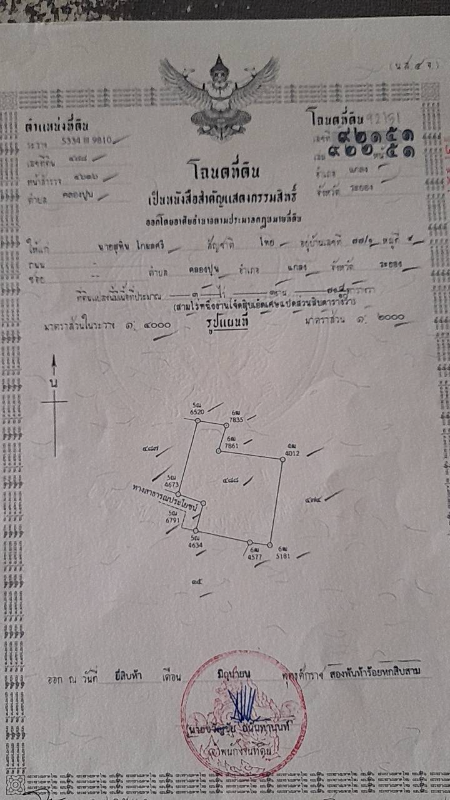 (น.ส.๔ จ.)
ตำแหน่งที่ดิน
ระวาง 5334 III 9810
เลขที่ดิน ๔๘๘
หน้าสำรวจ
ตำบล คลองปูน
โฉนดที่ดิน
เลขที่ ๙๒๑๕๑
เล่ม ๙๒๒ หน้า ๕๑
อำเภอ แกลง
จังหวัด ระยอง
โฉนดที่ดิน
เป็นหนังสือสำคัญแสดงกรรมสิทธิ์
ออกโดยอาศัยอำนาจตามประมวลกฎหมายที่ดิน
ให้แก่ สัญชาติ ไทย อยู่บ้านเลขที่ หมู่ที่
ถนน
ซอย ตำบล คลองปูน อำเภอ แกลง จังหวัด ระยอง
ที่ดินแปลงนี้มีเนื้อที่ประมาณ ๓ ไร่ งาน ตารางวา
มาตราส่วนในระวาง ๑: ๔๐๐๐ รูปแผนที่ มาตราส่วน ๑: ๒๐๐๐
น
6520
7835
7861
4012
๔๘๗
๔๘๘
4673
ทางสาธารณประโยชน์
6791
4634
4577
5181
๑๕
ออก ณ วันที่ ยี่สิบห้า เดือน มิถุนายน พุทธศักราช สองพันห้าร้อยหกสิบสาม
เจ้าพนักงานที่ดิน